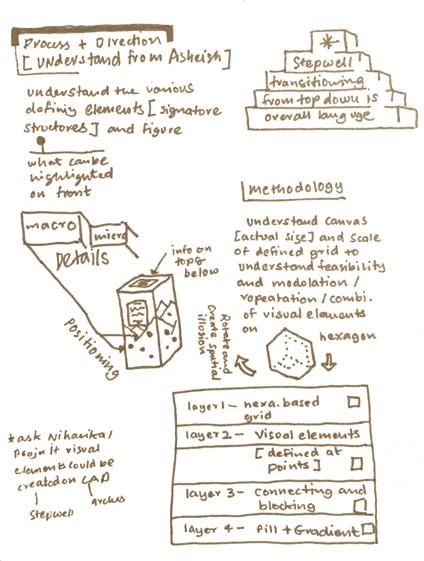 Process + Direction
[understand from Asheish]
understand the various
defining elements [signature
structores] and figure
what can be
highlighted
on front
*
Stepwell
transitioning
from top down is
overall language
methodology
understand canvas
[actual size] and scale
of defined grid to
understand feasibility
and modulation /
repeatation / combi.
of visual elements
on
hexagon
macro
micro
Details
info on
top &
below
Positioning
Rotate and
create spatial
illusion
layer 1 – hexa. based
grid
layer 2 – Visual elements
[defined at
points]
layer 3 – connecting and
blocking
layer 4 – fill + Gradient
* ask Niharika/
if visual
elements could be
created on CAD
stepwell
arches